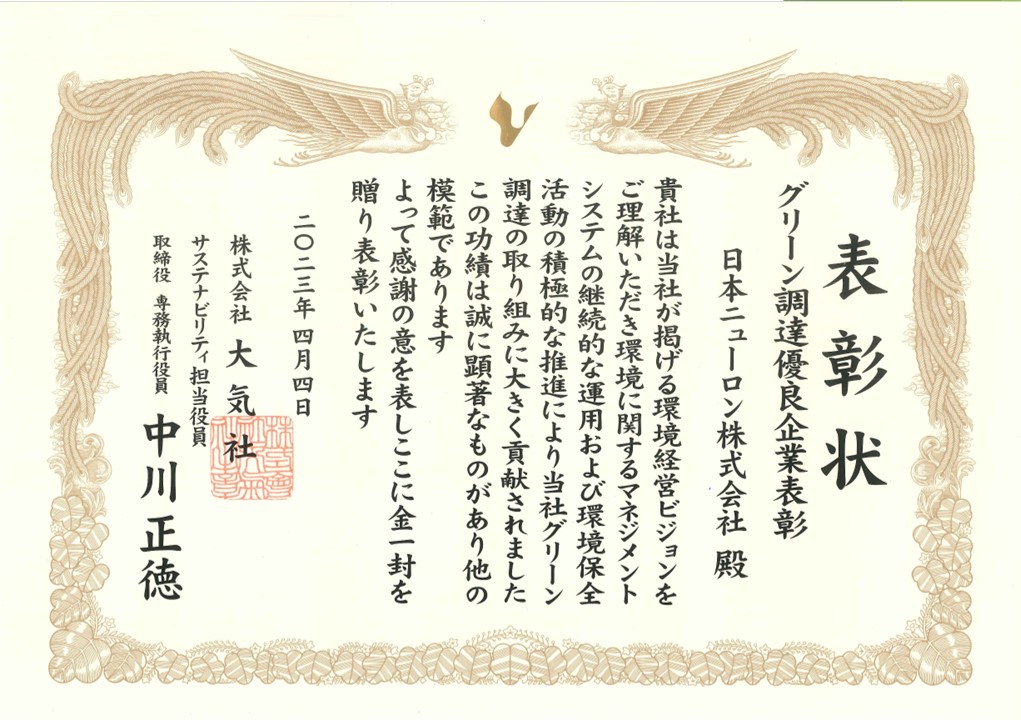 表彰状
グリーン調達優良企業表彰
日本ニューロン株式会社 殿
貴社は当社が掲げる環境経営ビジョンを
ご理解いただき環境に関するマネジメント
システムの継続的な運用および環境保全
活動の積極的な推進により当社グリーン
調達の取り組みに大きく貢献されました
この功績は誠に顕著なものがあり他の
模範であります
よって感謝の意を表しここに金一封を
贈り表彰いたします
二〇二三年 四月 四日
株式会社 大気社
サステナビリティ担当役員
取締役 専務執行役員 中川 正徳